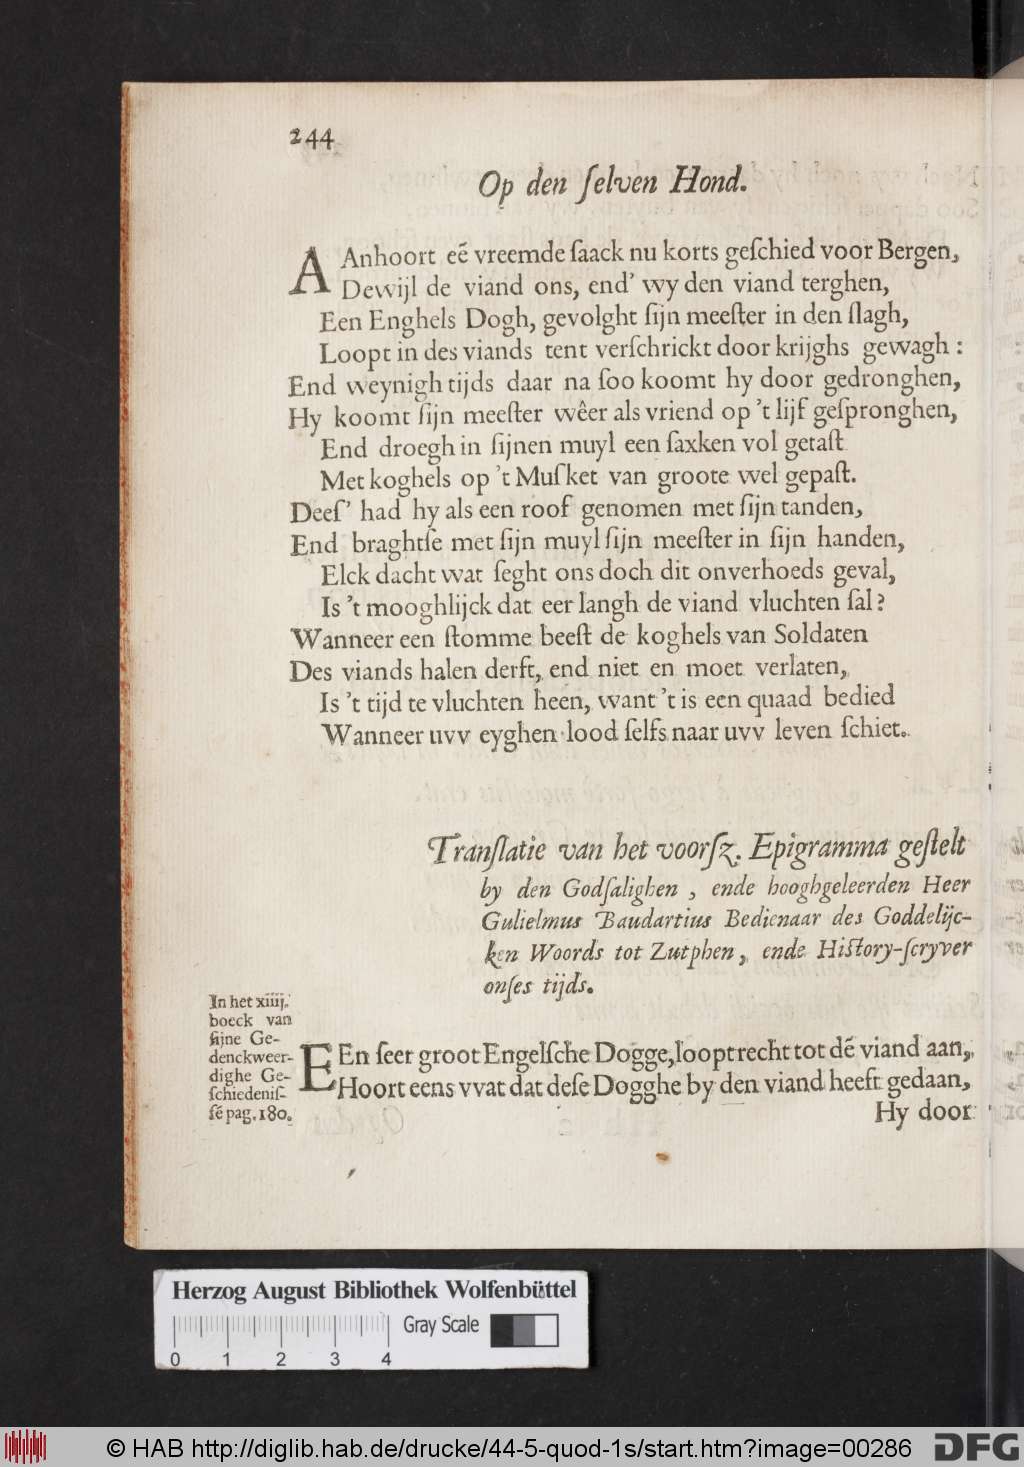 244
Op den ſelven Hond.
AAnhoort eẽ vreemde ſaack nu korts geſchied voor Bergen,
Dewijl de viand ons, end' wy den viand terghen,
Een Enghels Dogh, gevolght ſijn meeſter in den ſlagh,
Loopt in des viands tent verſchrickt door krijghs gewagh:
End weynigh tijds daar na ſoo koomt hy door gedronghen,
Hy koomt ſijn meeſter wêer als vriend op 't lijf geſpronghen,
End droegh in ſijnen muyl een ſaxken vol getaſt
Met koghels op 't Muſket van groote wel gepaſt.
Deeſ' had hy als een roof genomen met ſijn tanden,
End braghtſe met ſijn muyl ſijn meeſter in ſijn handen,
Elck dacht wat ſeght ons doch dit onverhoeds geval,
Is 't mooghlijck dat eer langh de viand vluchten ſal?
Wanneer een ſtomme beeſt de koghels van Soldaten
Des viands halen derft, end niet en moet verlaten,
Is 't tijd te vluchten heen, want 't is een quaad bedied
Wanneer uvv eyghen lood ſelfs naar uvv leven ſchiet.
Tranſlatie van het voorſz. Epigramma geſtelt
by den Godſalighen, ende hooghgeleerden Heer
Gulielmus Baudartius Bedienaar des Goddelijc-
ken Woords tot Zutphen, ende Hiſtory-ſcryver
onſes tijds.
In het xiiij.
boeck van
ſijne Ge-
denckweer-
dighe Ge-
ſchiedeniſ-
ſẽ pag. 180.
EEn ſeer groot Engelſche Dogge, loopt recht tot dẽ viand aan,
Hoort eens vvat dat deſe Dogghe by den viand heeft gedaan,
Hy door
Herzog August Bibliothek Wolfenbüttel
Gray Scale
0 1 2 3 4
© HAB http://diglib.hab.de/drucke/44-5-quod-1s/start.htm?image=00286
DFG